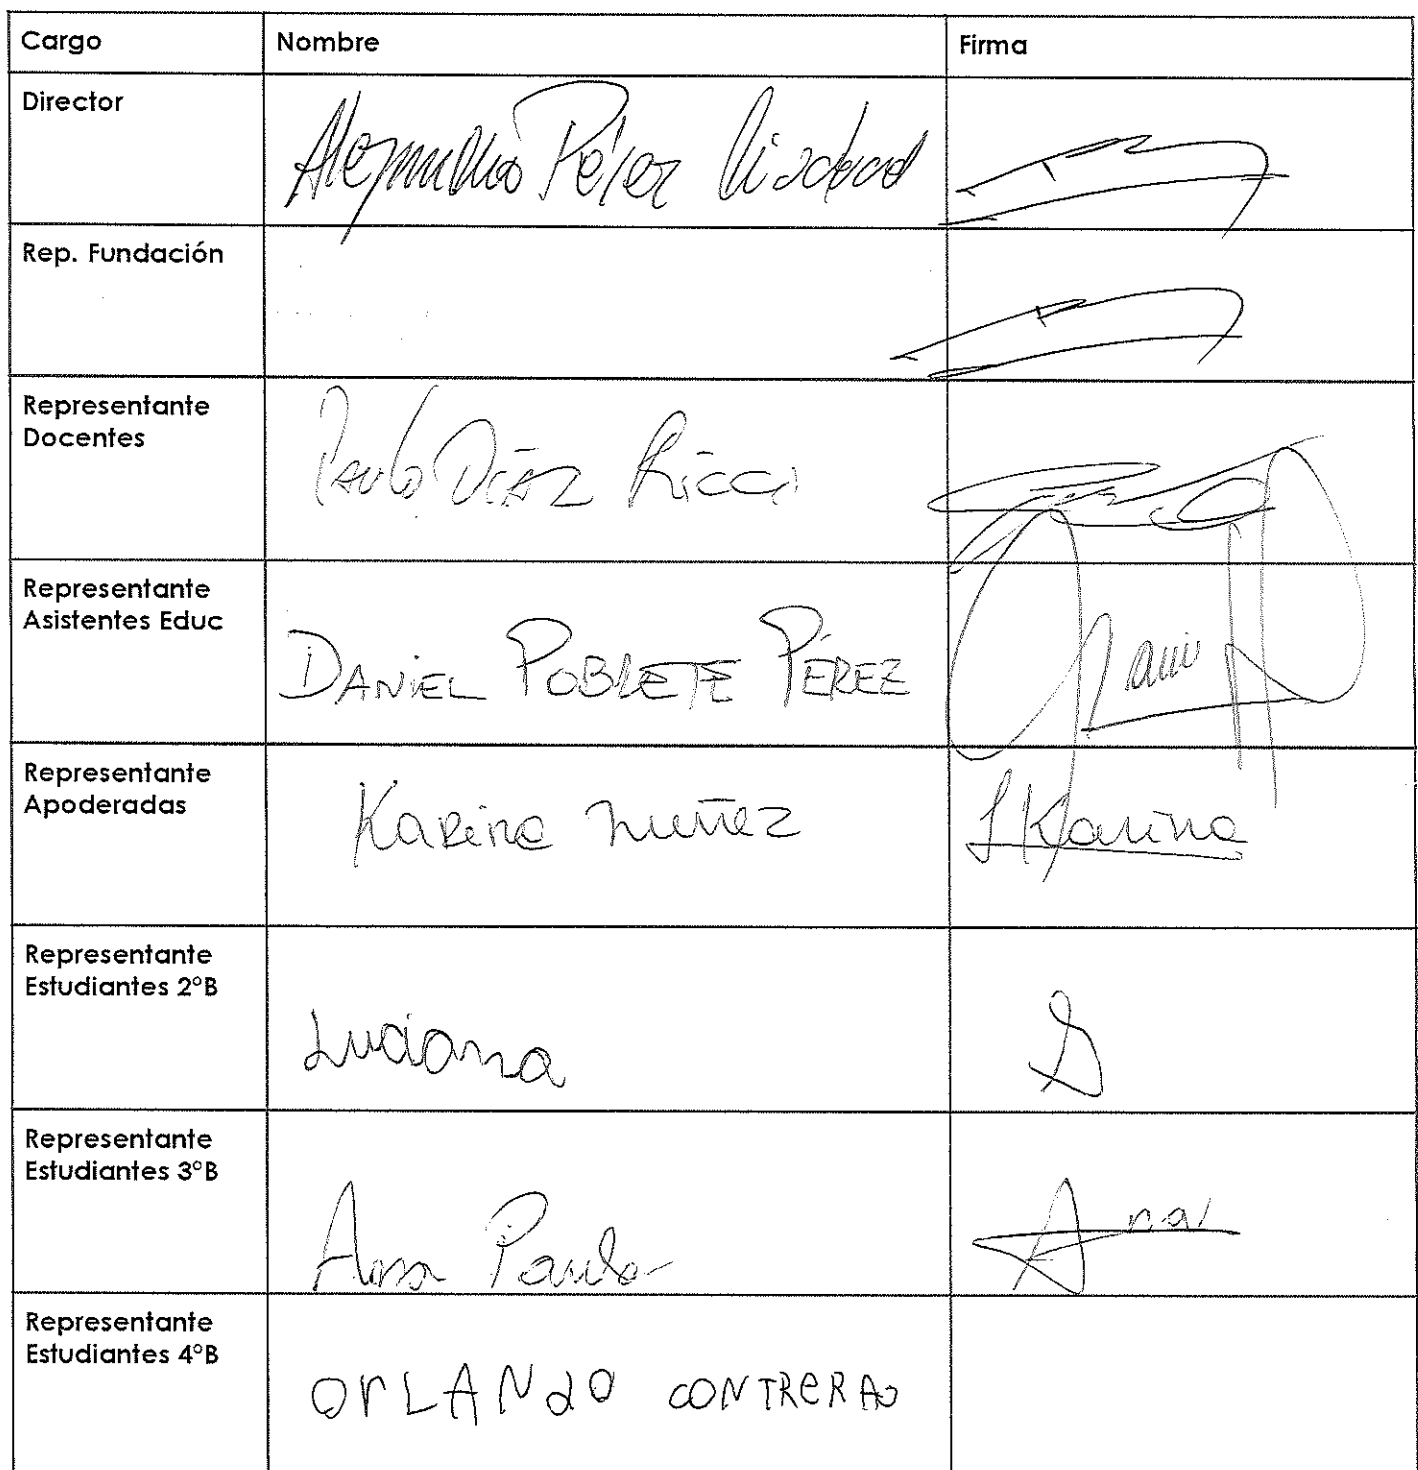 Cargo Nombre Firma
Director Pérez
Rep. Fundación
Representante
Docentes
Paulo Díaz Ricci
Representante
Asistentes Educ
DANIEL POBLETE PÉREZ
Representante
Apoderadas
Karina nuñez Karina
Representante
Estudiantes 2°B
Luciana
Representante
Estudiantes 3°B
Ana Paula Ana
Representante
Estudiantes 4°B
orLANdO CONTReRAs